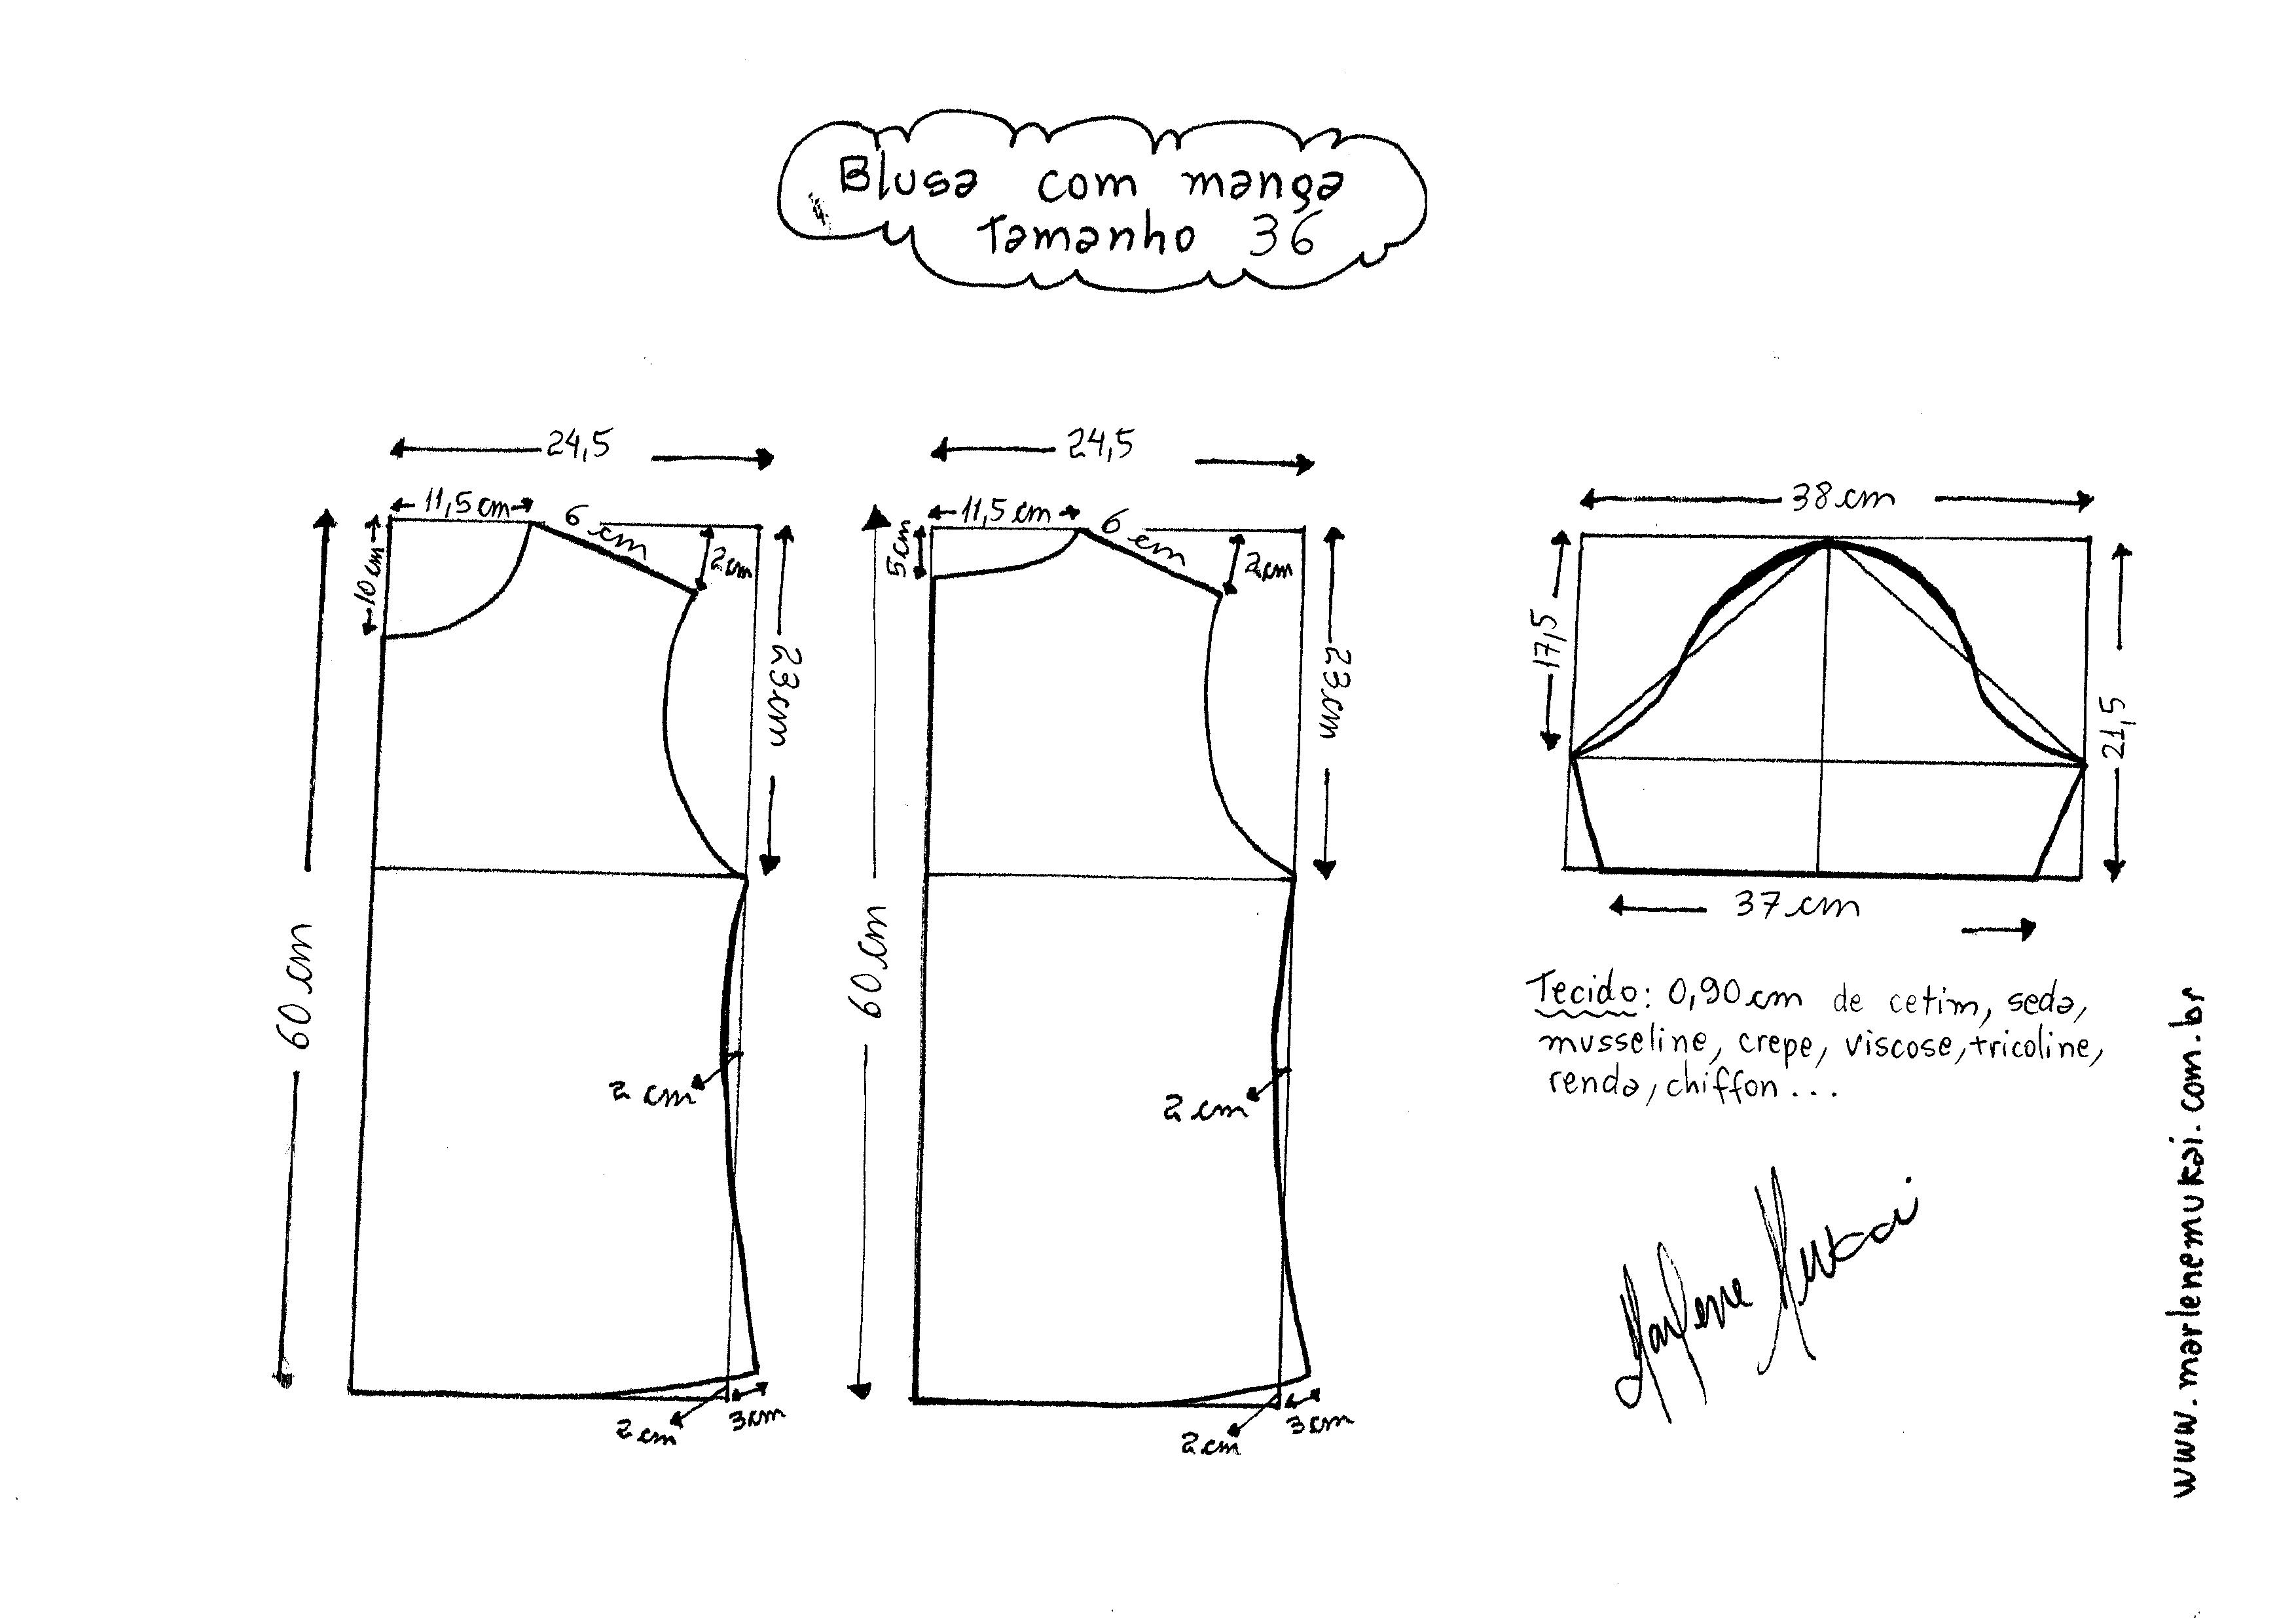 Blusa com manga
Tamanho 36
24,5
11,5 cm
6 cm
10 cm
2 cm
23 cm
60 cm
2 cm
2 cm
3 cm
24,5
11,5 cm
6 cm
5 cm
2 cm
23 cm
60 cm
2 cm
2 cm
3 cm
38 cm
17,5
21,5
37 cm
Tecido: 0,90 cm de cetim, seda,
musseline, crepe, viscose, tricoline,
renda, chiffon...
Marlene Mukai
www.marlenemukai.com.br